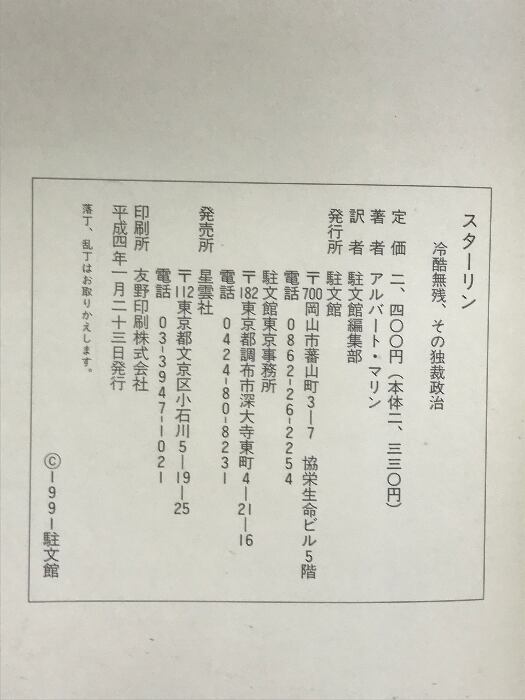 スターリン
冷酷無残、その独裁政治
定価 二、四〇〇円(本体二、三三〇円)
著者 アルバート・マリン
訳者 駐文館編集部
発行所 駐文館
〒700岡山市蕃山町3―7 協栄生命ビル5階
電話 0862-26-2254
駐文館東京事務所
〒182東京都調布市深大寺東町4―21―16
電話 0424-80-8231
発売所 星雲社
〒112東京都文京区小石川5―19―25
電話 03-3947-1021
印刷所 友野印刷株式会社
平成四年一月二十三日発行
落丁、乱丁はお取りかえします。
©1991駐文館